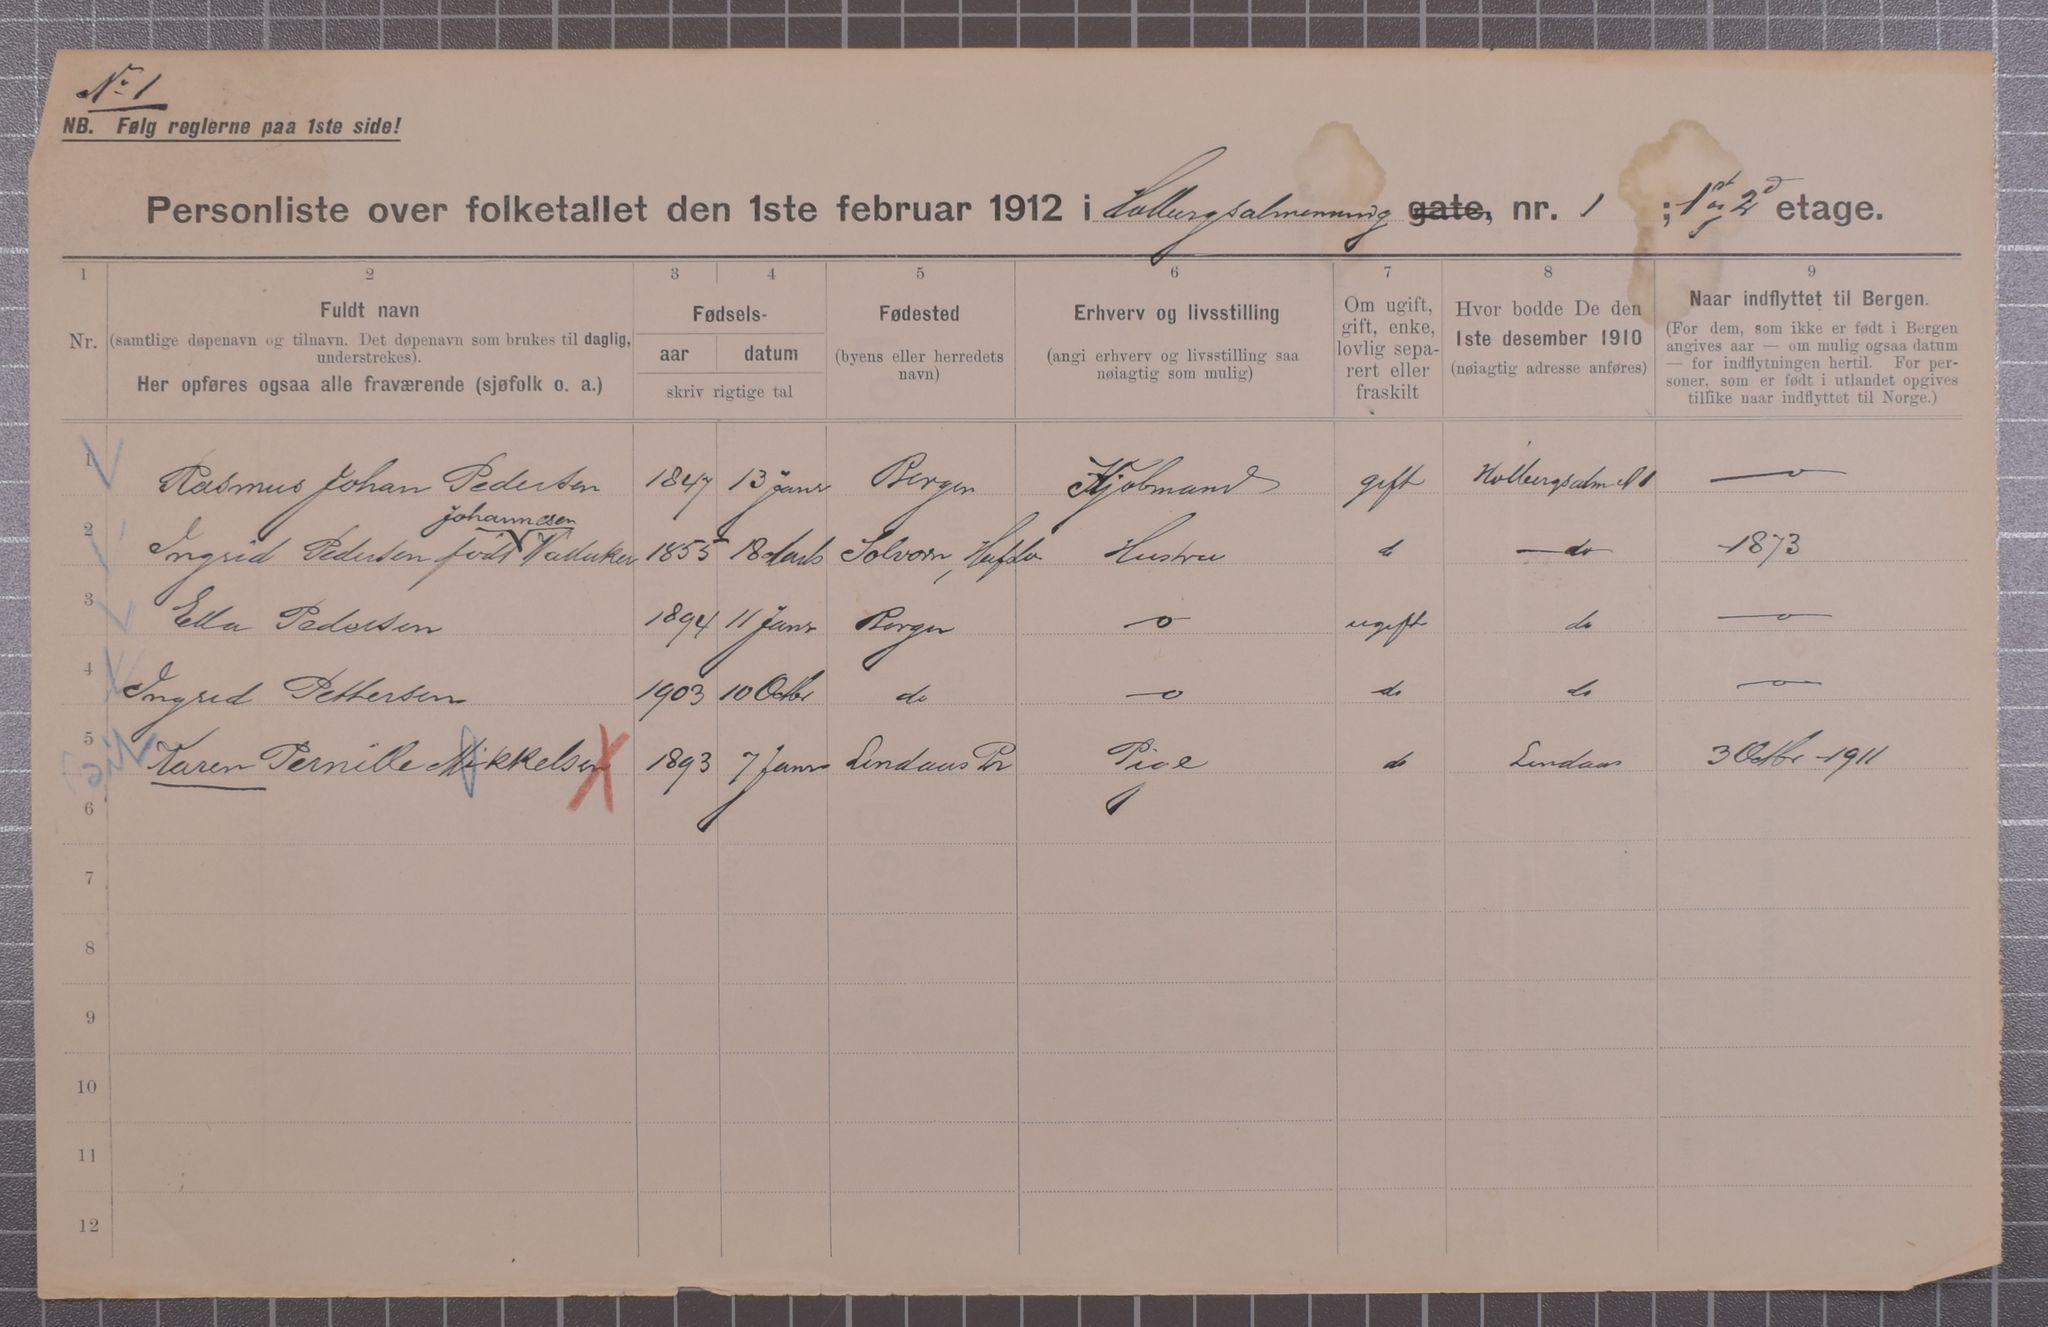 No 1
NB. Følg reglerne paa 1ste side!
Personliste over folketallet den 1ste februar 1912 i Holbergsalmenning gate, nr. 1 ; 1st og 2d etage.
1 2 3 4 5 6 7 8 9
Nr.
Fuldt navn
(samtlige døpenavn og tilnavn. Det døpenavn som brukes til daglig, understrekes).
Her opføres ogsaa alle fraværende (sjøfolk o. a.)
Fødsels-
aar datum
skriv rigtige tal
Fødested
(byens eller herredets
navn)
Erhverv og livsstilling
(angi erhverv og livsstilling saa
nøiagtig som mulig)
Om ugift,
gift, enke,
lovlig sepa-
rert eller
fraskilt
Hvor bodde De den
1ste desember 1910
(nøiagtig adresse anføres)
Naar indflyttet til Bergen.
(For dem, som ikke er født i Bergen
angives aar — om mulig ogsaa datum
— for indflytningen hertil. For per-
soner, som er født i utlandet opgives
tilfike naar indflyttet til Norge.)
1 Rasmus Johan Pedersen 1847 13 Janr Bergen Kjøbmand gift Holbergsalm N 1 —o
Johannesen
2 Ingrid Pedersen født 1855 18 Solvorn, Hafslo Hustru do — do 1873
3 Ella Pedersen 1894 11 Janr Bergen —o ugift do —o
4 Ingrid Pettersen 1903 10 Octbr do —o do do —o
5 Karen Pernille Mikkelsen 1893 7 Janr Lindaas Pr Pige do Lindaas 3 Octbr 1911
6
7
8
9
10
11
12